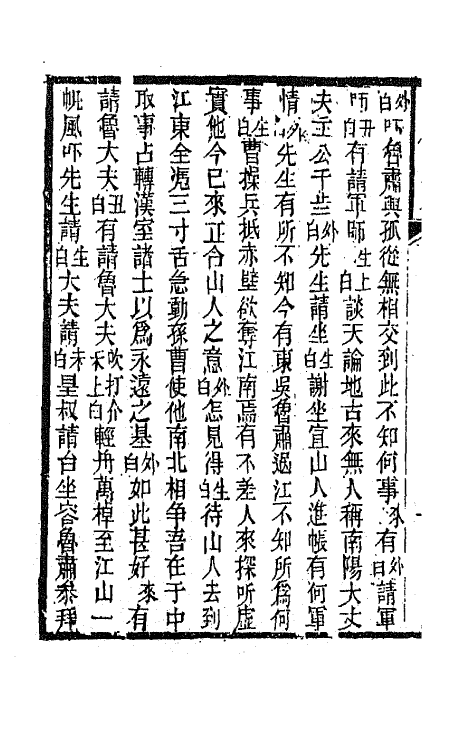 外白吓魯肅與孤從無相交到此不知何事來有外白請軍
師丑白有請軍師生上白談天論地古來無人稱南陽大丈
夫主公千歲外白先生請坐生白謝坐宣山人進帳有何軍
情外白先生有所不知今有東吳魯肅過江不知所為何
事生白曹操兵抵赤壁欲奪江南焉有不差人來探听虛
實他今已來正合山人之意外白怎見得生白待山人去到
江東全凴三寸舌急動孫曹使他南北相爭吾在于中
取事占轉漢室諸土以為永遠之基外白如此甚好來有
請魯大夫丑白有請魯大夫吹打介末上白輕舟萬棹至江山一
帆風吓先生請生白大夫請末白皇叔請台坐容魯肅叅拜